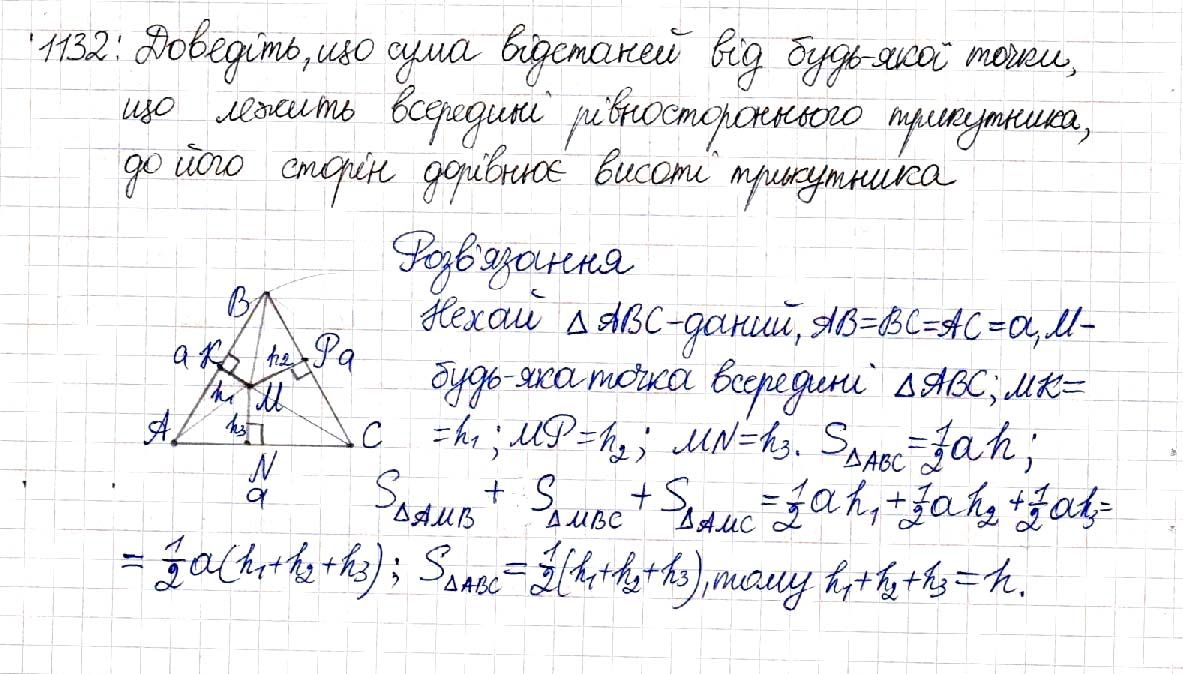 1132: Доведіть, що сума відстаней від будь-якої точки,
що лежить всередині рівностороннього трикутника,
до його сторін дорівнює висоті трикутника
Розв'язання
Нехай △ABC-даний, AB=BC=AC=a, M-
будь-яка точка всередині △ABC; MK=
=h₁; MP=h₂; MN=h₃. S△ABC=½ah;
S△AMB + S△MBC + S△AMC =½ah₁+½ah₂+½ah₃=
=½a(h₁+h₂+h₃); S△ABC=½(h₁+h₂+h₃), тому h₁+h₂+h₃=h.
B
a K h₂ P a
h₁ M
A h₃ C
N
a